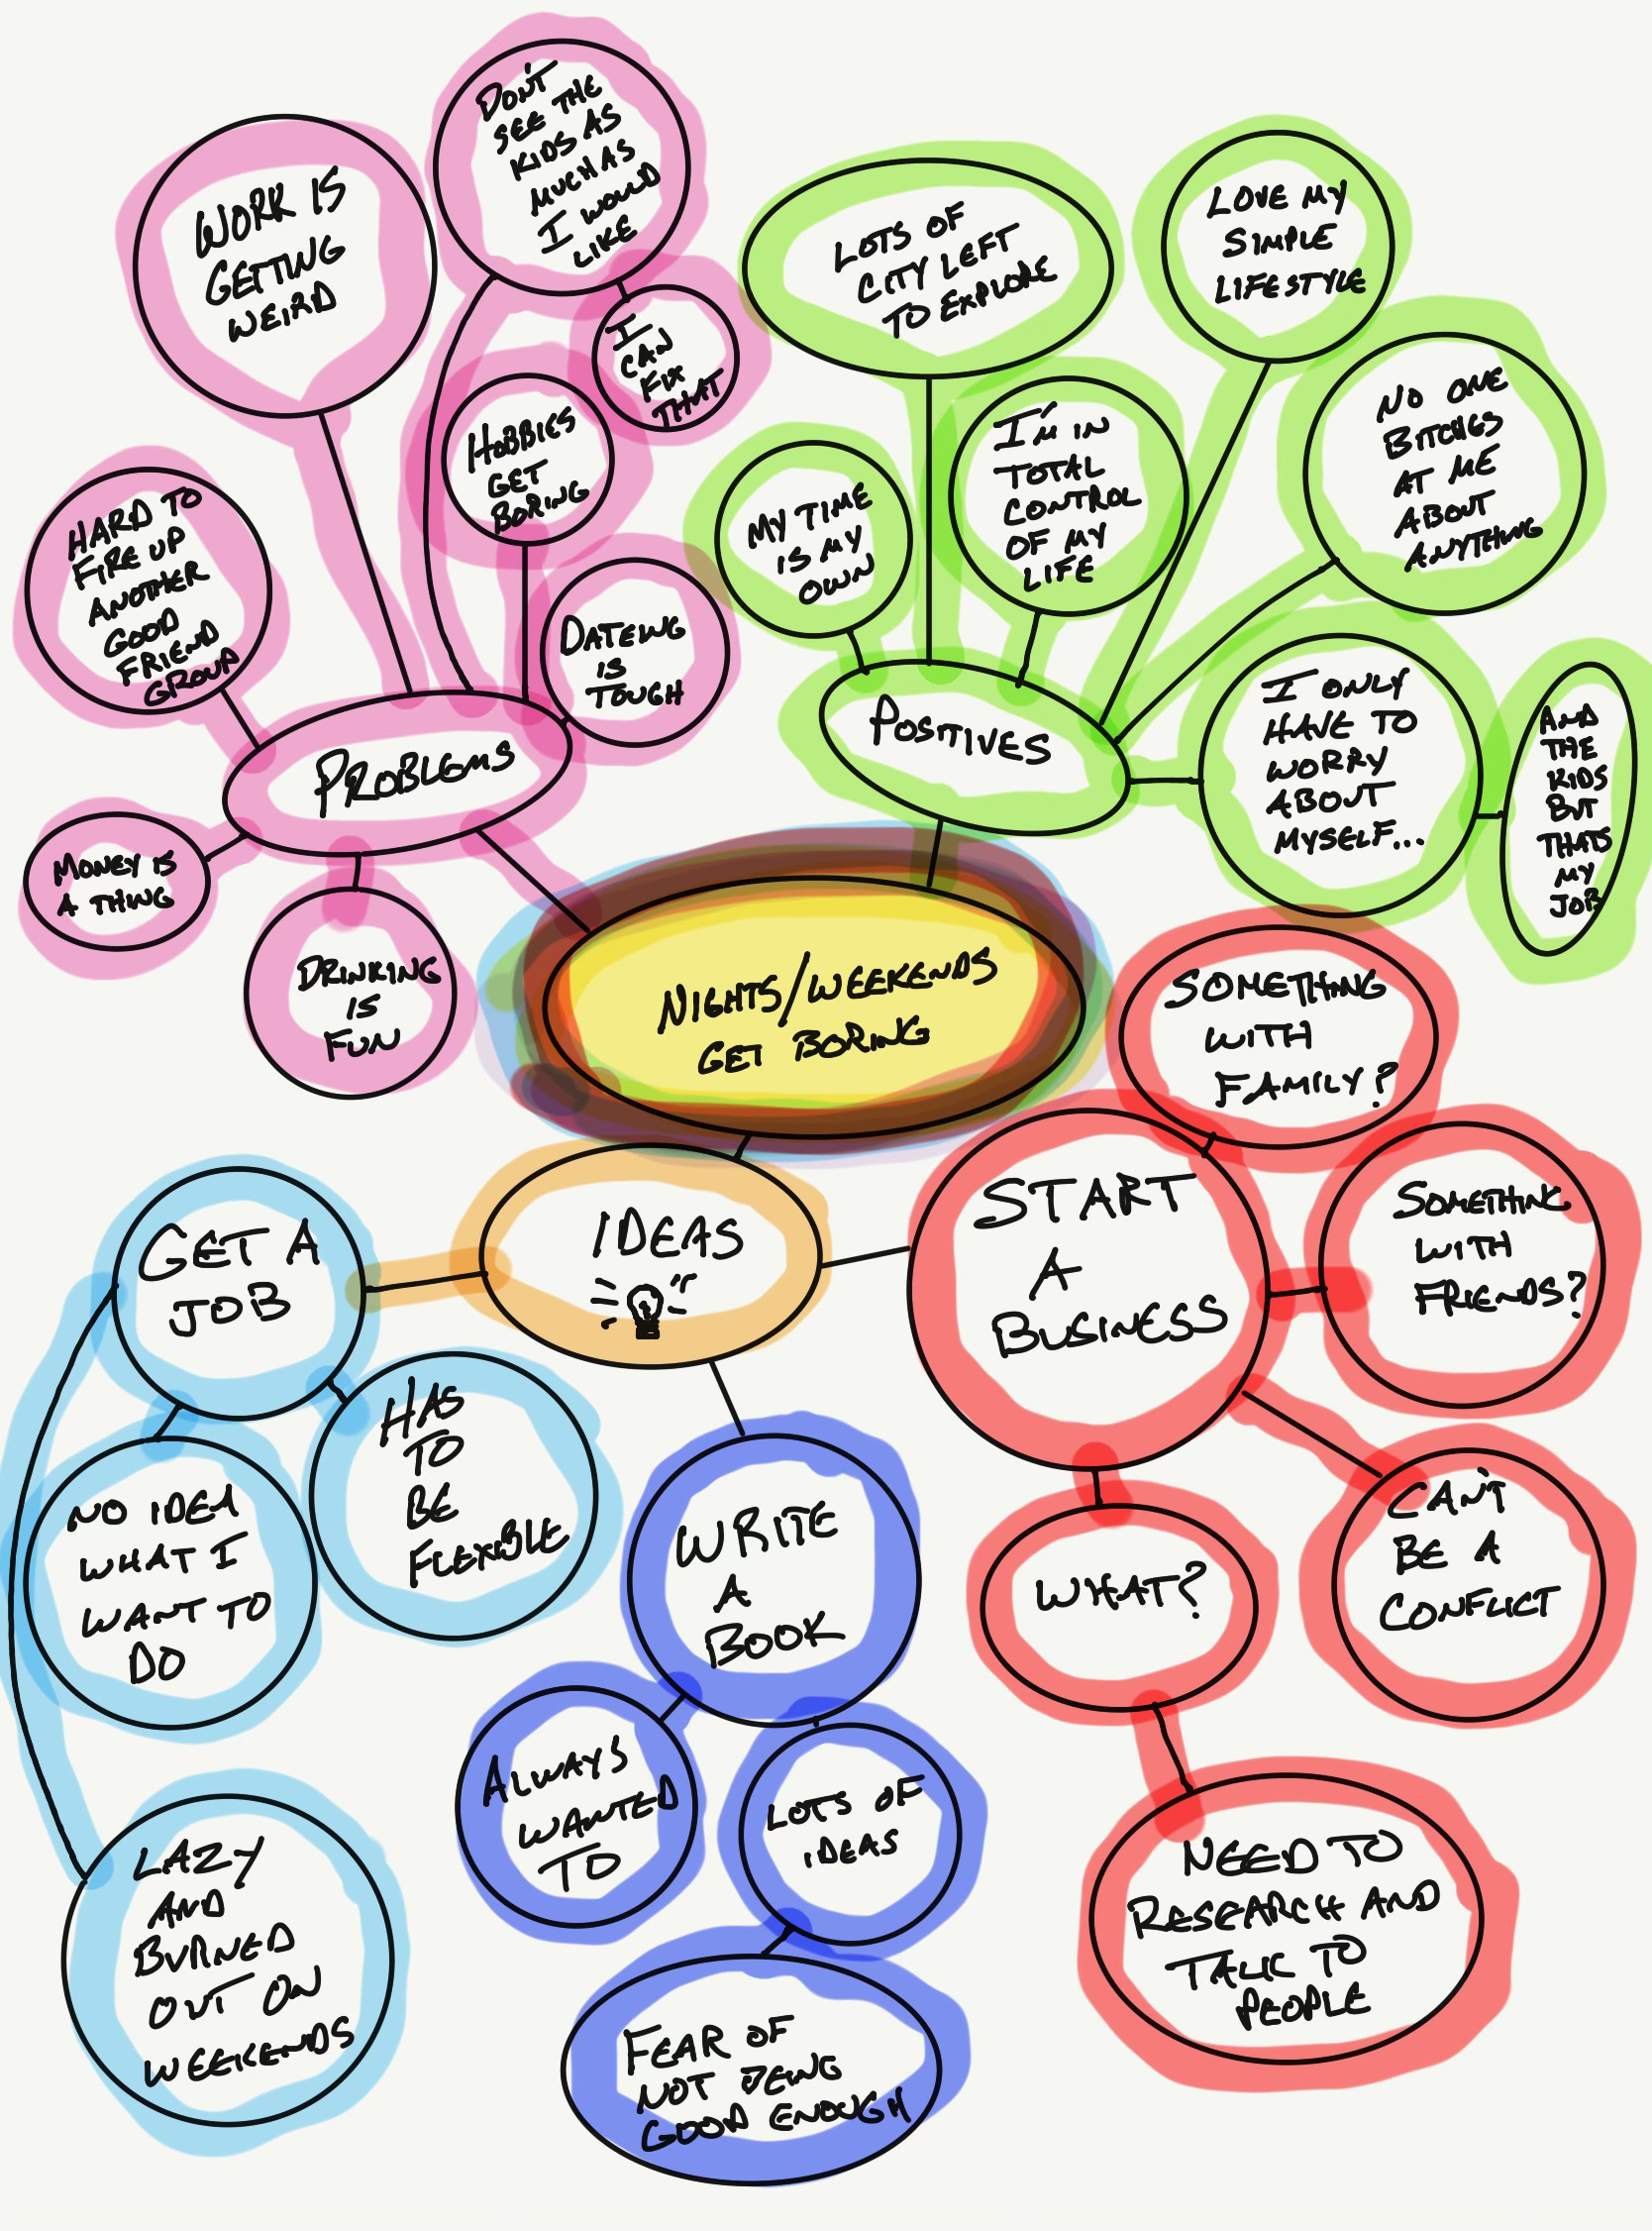 DON'T
SEE THE
KIDS AS
MUCH AS
I WOULD
LIKE
WORK IS
GETTING
WEIRD
I
CAN
FIX
THAT
HOBBIES
GET
BORING
HARD TO
FIRE UP
ANOTHER
GOOD
FRIEND
GROUP
DATEING
IS
TOUGH
PROBLEMS
MONEY IS
A THING
DRINKING
IS
FUN
LOTS OF
CITY LEFT
TO EXPLORE
LOVE MY
SIMPLE
LIFESTYLE
NO ONE
BITCHES
AT ME
ABOUT
ANYTHING
I'M IN
TOTAL
CONTROL
OF MY
LIFE
MY TIME
IS MY
OWN
POSITIVES
I ONLY
HAVE TO
WORRY
ABOUT
MYSELF...
AND
THE
KIDS
BUT
THATS
MY
JOB
NIGHTS/WEEKENDS
GET BORING
IDEAS
GET A
JOB
HAS
TO
BE
FLEXIBLE
NO IDEA
WHAT I
WANT TO
DO
LAZY
AND
BURNED
OUT ON
WEEKENDS
WRITE
A
BOOK
ALWAYS
WANTED
TO
LOTS OF
IDEAS
FEAR OF
NOT BEING
GOOD ENOUGH
START
A
BUSINESS
SOMETHING
WITH
FAMILY?
SOMETHING
WITH
FRIENDS?
CAN'T
BE A
CONFLICT
WHAT?
NEED TO
RESEARCH AND
TALK TO
PEOPLE